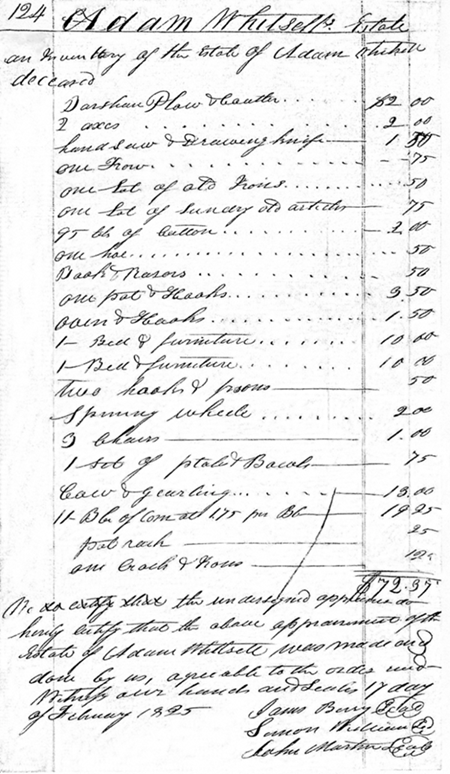 124 Adam Whitsell's Estate
an Inventory of the Estate of Adam Whitsell
deceased
Darshan Plow & Coulter ........ $2 00
2 axes ........ 2.00
hand saw & Drawing knife — 1.50
one Frow ........ 75
one Lot of old Irons ........ 50
one Lot of Sundry old articles — 75
95 lb of Cotton ........ 2 00
one hoe ........ 50
Book & Rasors ........ 50
one pot & Hooks ........ 3.50
oven & Hooks ........ 1.50
1 — Bed & furniture ........ 10 00
1 — Bed & furniture ........ 10 00
two hooks & — 50
Spining wheele ........ 2.00
3 Chairs — 1.00
1 set of plates & — 75
Cow & yearling ........ 13.00
11 Bbl of Corn at 1.75 per Bb — 19.25
pot rack — 25
one & Irons — 12
$72.37
We do certify that the undersigned do
hereby certify that the above appraisement of the
Estate of Adam Whitsell was made and
done by us, agreeable to the order
Witness our hands and Seals 17 day
of Febuary 1825
James Berry Seal
Simon William
John Martin Seal